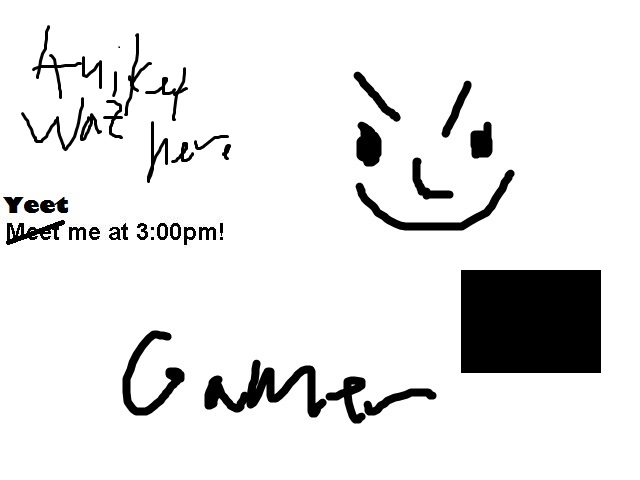 Aniket
Waz
here
Yeet
Meet me at 3:00pm!
Gamer